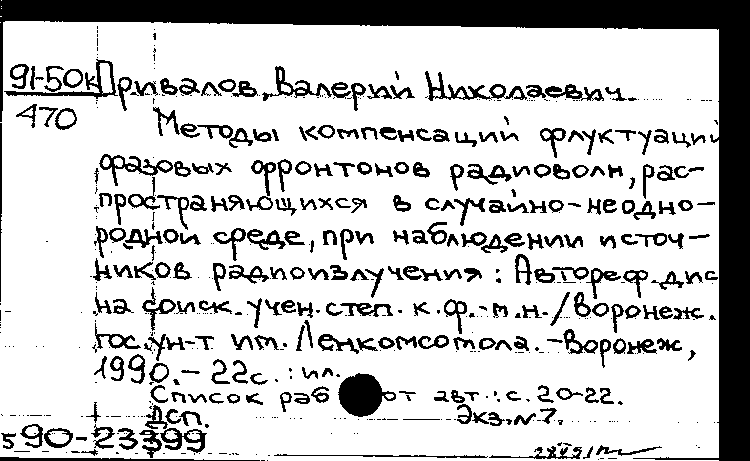 91-50к Привалов, Валерий Николаевич.
470
Методы компенсаций флуктуаций
фазовых фронтонов радиоволн, рас-
пространяющихся в случайно-неодно-
родной среде, при наблюдении источ-
ников радиоизлучения: Автореф. дис
на соиск. учен. степ. к. ф.-м.н./Воронеж.
гос. ун-т им. Ленкомсомола.-Воронеж,
1990.- 22с.: ил.
Список раб от авт.: с. 20-22.
ДСП. Экз.N7.
590-23399